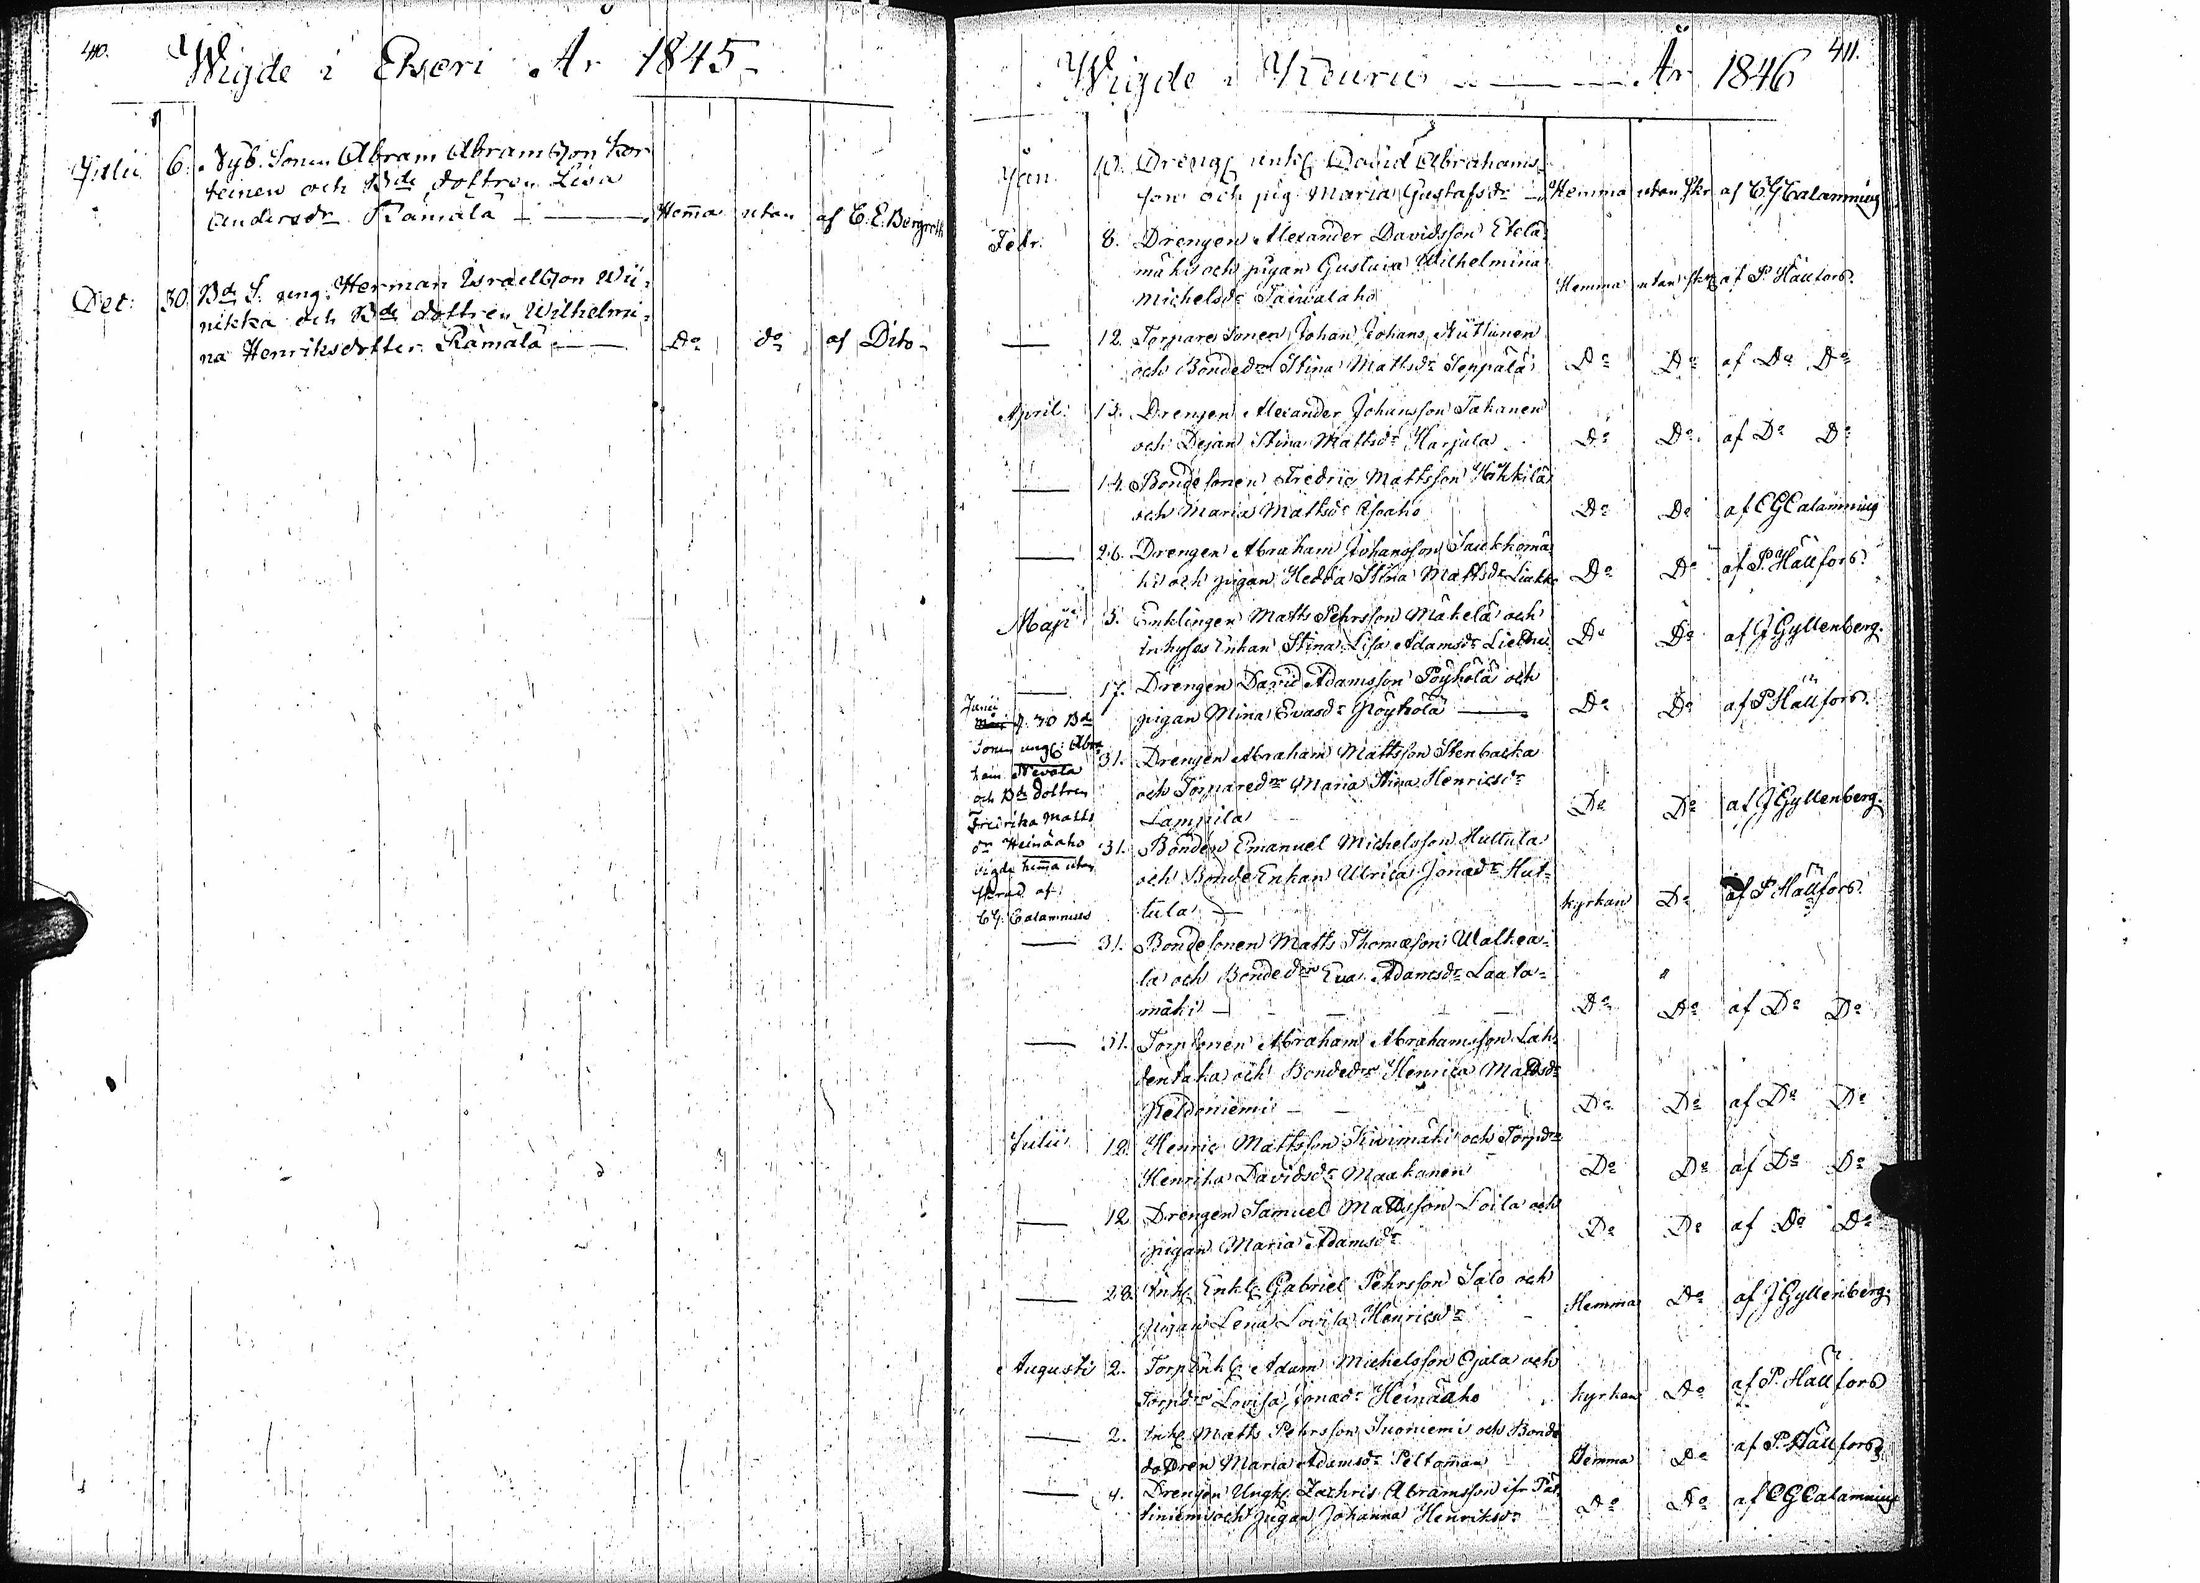 410.
Wigde i Etseri År 1845
Julii 6. Nyb. Sonen Abram Abramsson Kor
teinen och Bde dottren Lisa
Andersdr Rämälä Hem̄a utan af C. E. Bergroth
Dec: 30. Bd S. ung: Herman Israelsson Wii-
nikka och Bde dottren Wilhelmi-
na Henriksdotter Rämälä Do do af Dito
411.
Wigde i Keuru År 1846
Jan. 10. Dreng Enkl David Abrahams-
son och pig. Maria Gustafsdr Hemma utan skr af C G Calamnius
Febr. 8. Drengen Alexander Davidsson Etelä
mäki och pigan Gustava Wilhelmina
Michelsdr Taivalaho Hemma utan skr af P. Hällfors.
12. Torpare Sonen Johan Johans. Hüttunen
och Bondedr Stina Mattsdr Seppälä Do Do af Do Do
April. 13. Drengen Alexander Johansson Takanen
och Dejan Stina Mattsdr Harjula Do Do af Do Do
14. Bondesonen Fredric Mattsson Häkkilä
och Maria Mattsdr Do Do af C G Calamnius
26. Drengen Abraham Johansson Saukkomä
ki och pigan Hedda Stina Mattsdr Do Do af P. Hällfors.
Maji 3. Enklingen Matts Pehrsson Mäkelä och
inhyses Enkan Stina Lisa Adamsdr Do Do af J Gyllenberg.
17. Drengen David Adamsson Pöyhölä och
pigan Mina Evasdr Pöyhölä Do Do af P Hällfors.
Junii
d. 30 Bde
Sonen ungk: Abra
ham Nevala
och Bde dottren
Fredrika Matts
dr Heinäaho
vigde hem̄a utan
skrud af
CG. Calamnius
31. Drengen Abraham Mattsson Stenbacka
och Torparedr Maria Stina Henricsdr
Lampila Do Do af J Gyllenberg.
31. Bonden Emanuel Michelsson Huttula
och Bonde Enkan Ulrica Jonædr Hut-
tula kyrkan Do af P Hällfors.
31. Bondesonen Matts Thomæson Walkea-
la och Bondedr Eva Adamsdr Laata-
mäki Do Do af Do Do
31. Torpsonen Abraham Abrahamsson Lah-
dentaka och Bondedr Henrica Mattsdr
Peldoniemi Do Do af Do Do
Julii 12. Henric Mattsson Kivimäki och Torpdr
Henrika Davidsdr Maakanen Do Do af Do Do
12 Drengen Samuel Mattsson Loila och
pigan Maria Adamsdr Do Do af Do Do
28. Inh. Enkl Gabriel Pehrsson Salo och
pigan Lena Lovisa Henricsdr Hemma Do af J Gyllenberg.
Augusti 2. Torp Enkl Adam Michelsson Ojala och
Torpdr Lovisa Jonædr Heinäaho kyrkan Do af P. Hällfors
2. Inh. Matts Pehrsson Suoniemi och Bonde
dottren Maria Adamsdr Peltoman Hemma Do af P. Hällfors.
4. Drengen Ungk. Zachris Abramsson ifr Pät
tiniemi och Pigan Johanna Henriksdr Do Do af C G Calamnius